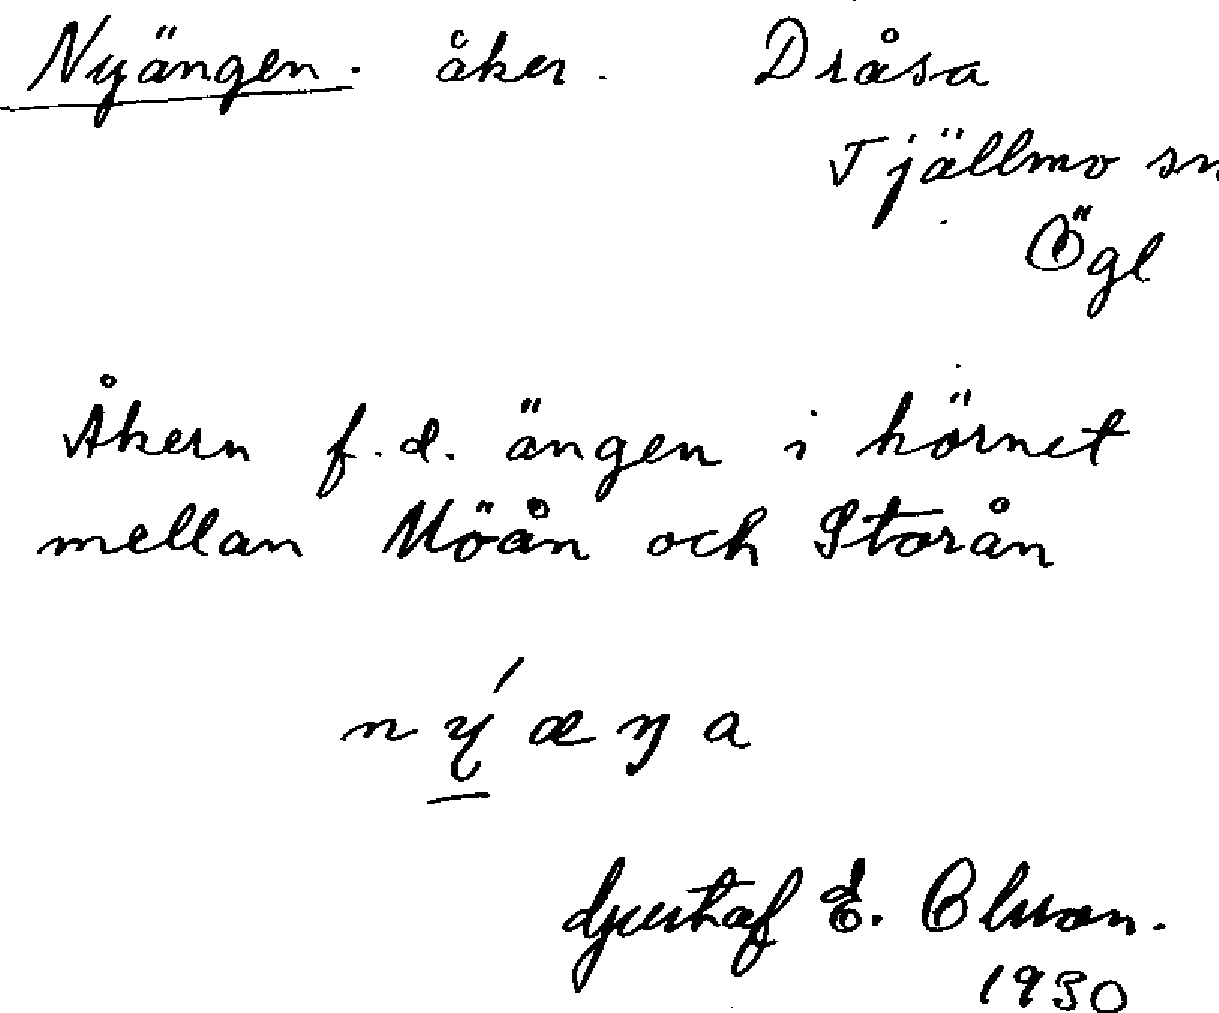 Nyängen. åker. Dråsa
Tjällmo sn
Ögl
Åkern f.d. ängen i hörnet
mellan Möån och Storån
ný̱æŋa
Gustaf E. Olsson.
1930